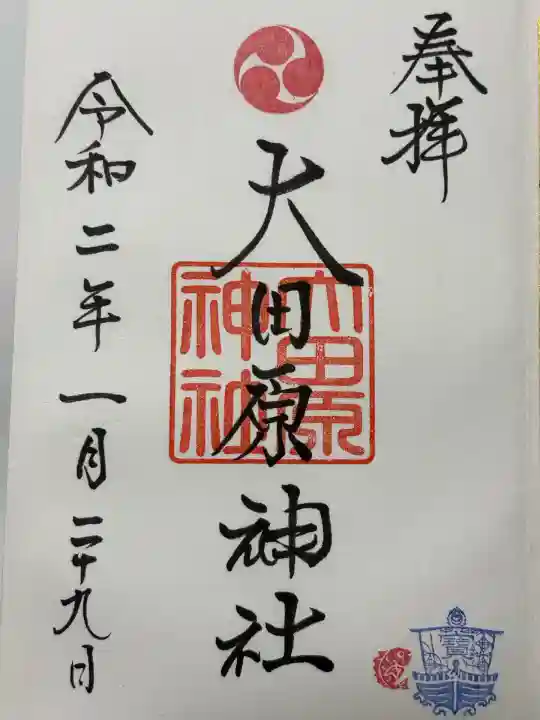 奉拝
大田原神社
大田原
神社
令和二年一月二十九日
寶